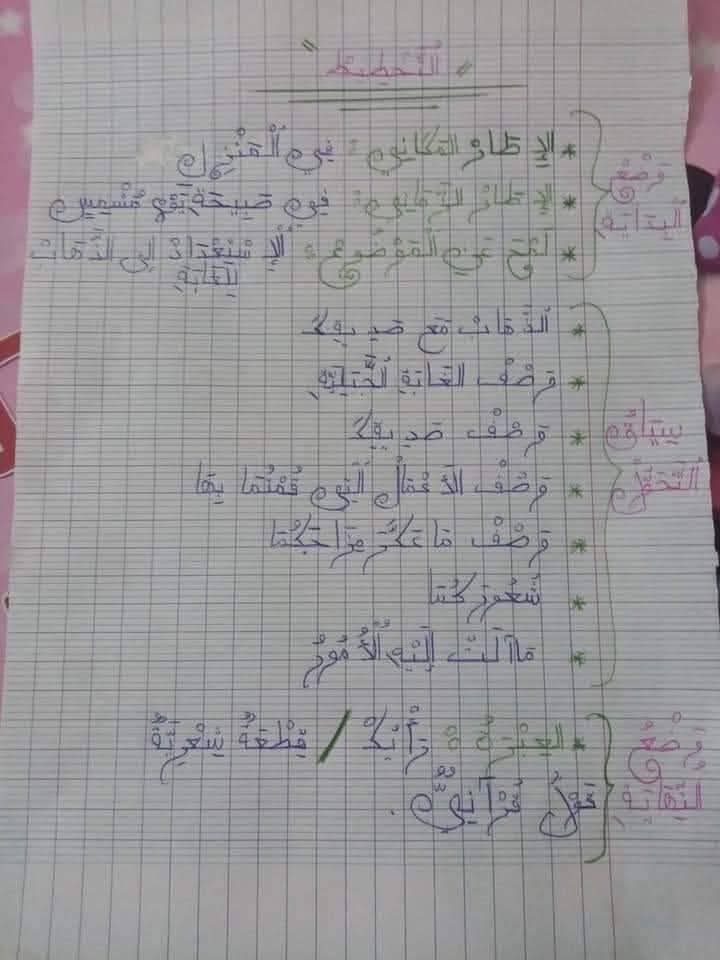 " التَّخْطِيطُ "
وَضْعُ الْبِدَايَةِ
* الإِطَارُ الْمَكَانِي : فِي الْمَنْزِلِ
* الإِطَارُ الزَّمَانِي : فِي صَبِيحَةِ يَوْمٍ مُشْمِسٍ
* لَمْحٌ عَنِ الْمَوْضُوعِ : الاِسْتِعْدَادُ إِلَى الذَّهَابْ
لِلْغَابَةِ
سِيَاقُ التَّحَوُّلِ
* الذَّهَابُ مَعَ صَدِيقِكَ
* وَصْفُ الْغَابَةِ الْجَبَلِيَّةِ
* وَصْفُ صَدِيقِكَ
* وَصْفُ الأَعْمَالِ الَّتِي قُمْتُمَا بِهَا
* وَصْفُ مَا عَكَّرَ مِزَاجَكُمَا
* شُعُورُكُمَا
* مَا آلَتْ إِلَيْهِ الأُمُورُ
وَضْعُ النِّهَايَةِ
* الْعِبْرَةُ : رَأْيُكْ / قِطْعَةٌ شِعْرِيَّةٌ
قَوْلٌ قُرْآنِيٌّ .